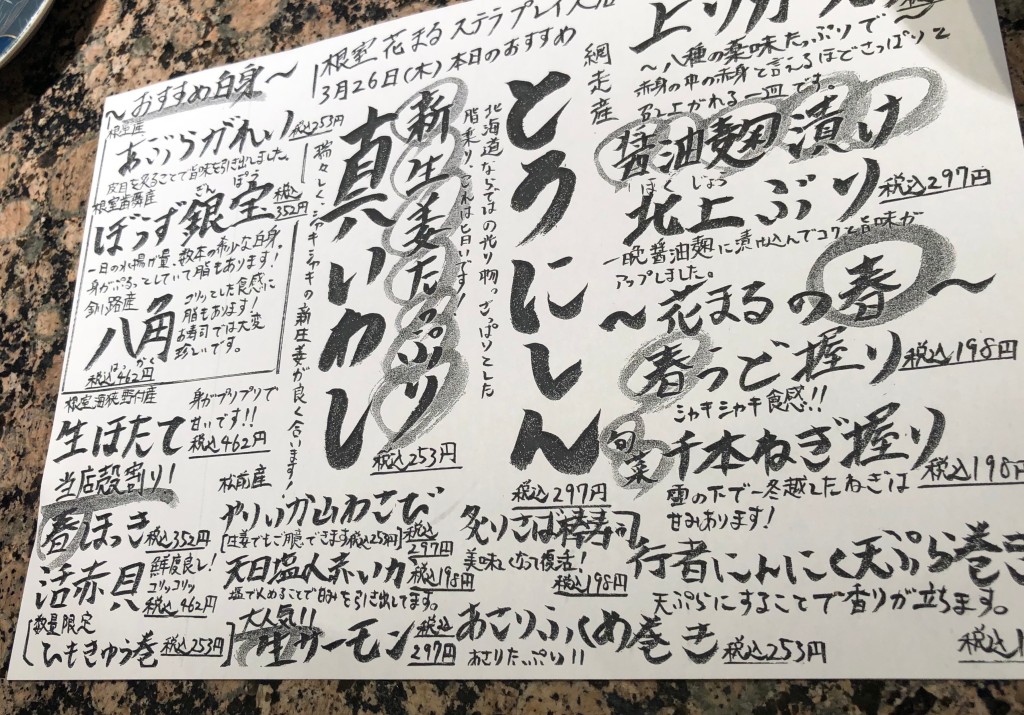 根室花まるステラプレイス店
3月26日(木)本日のおすすめ
〜おすすめ白身〜
根室産
あぶらがれい 税込253円
皮目を炙ることで旨味を引き出しました。
根室歯舞産
ぼうず銀宝 税込352円
ぎんぽう
一日の水揚が量、数本の希少な白身。
身がぷるっとしていて脂もあります!
釧路産
八角
はっかく
税込462円
コリッとした食感に
脂もあります!
お寿司では大変
珍しいです。
根室海峡野付産
生ほたて
身がプリプリで
甘いです!!
税込462円
当店殻割り!
春ほっき 税込352円
活赤貝
鮮度良し!
コリッコリッ
税込462円
数量限定
[ひもきゅう巻 税込253円]
新生姜たっぷり
真いわし
瑞々しく、シャキシャキの新生姜が良く合います!
税込253円
松前産
やりいか山わさび
[生姜でもご用意できます税込253円]
税込297円
天日塩〆赤いか 税込198円
塩で〆めることで甘みを引き出してます。
大人気!!
生サーモン 税込297円
とろにしん
北海道ならではの光り物。さっぱりとした
税込297円
炙りさば棒寿司
美味しくなって復活!
税込198円
あさりふくめ巻き 税込253円
あさりたっぷり!!
網走産
〜八種の薬味たっぷりで〜
赤身の中の赤身と言えるほどさっぱりと
召し上がれる一皿です。
醤油麹漬け
ほくじょう
北上ぶり 税込297円
一晩醤油麹に漬け込んでコクと旨味が
アップしました。
〜花まるの春〜
春うど握り 税込198円
シャキシャキ食感!!
旬菜
千本ねぎ握り 税込198円
雪の下で一冬越したねぎは
甘みあります!
行者にんにく天ぷら巻き
天ぷらにすることで香りが立ちます。
税込